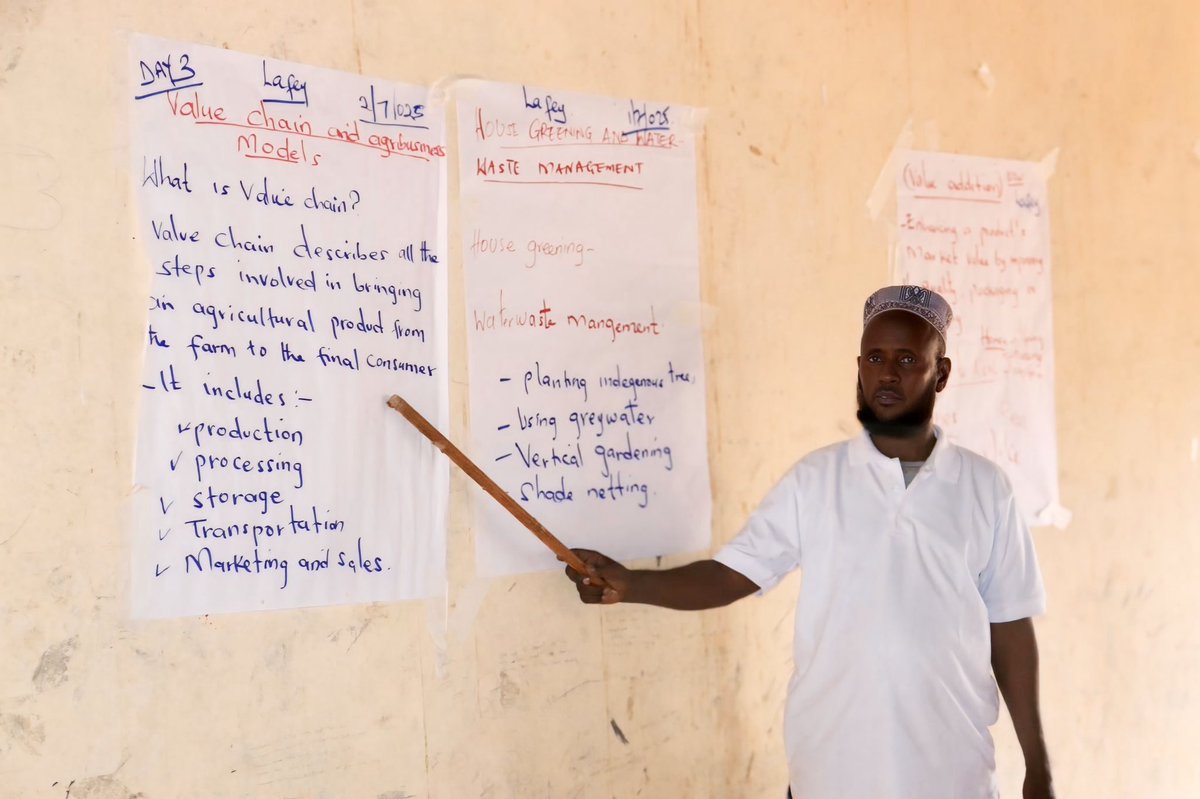 DAY 3 Lafey 2/7/025
Value chain and agribusiness
Models
What is Value chain?
Value chain describes all the
steps involved in bringing
an agricultural product from
the farm to the final consumer
-It includes:-
✓production
✓ processing
✓ storage
✓ Transportation
✓ Marketing and sales.
Lafey
HOUSE GREENING AND WATER-
WASTE MANAGEMENT
House greening-
Waterwaste mangement
- planting indegenous tree,
- Using greywater
- Vertical gardening
- Shade netting.
(Value addition)
Lafey
-Enhancing a product's
Market value by improving
packaging or